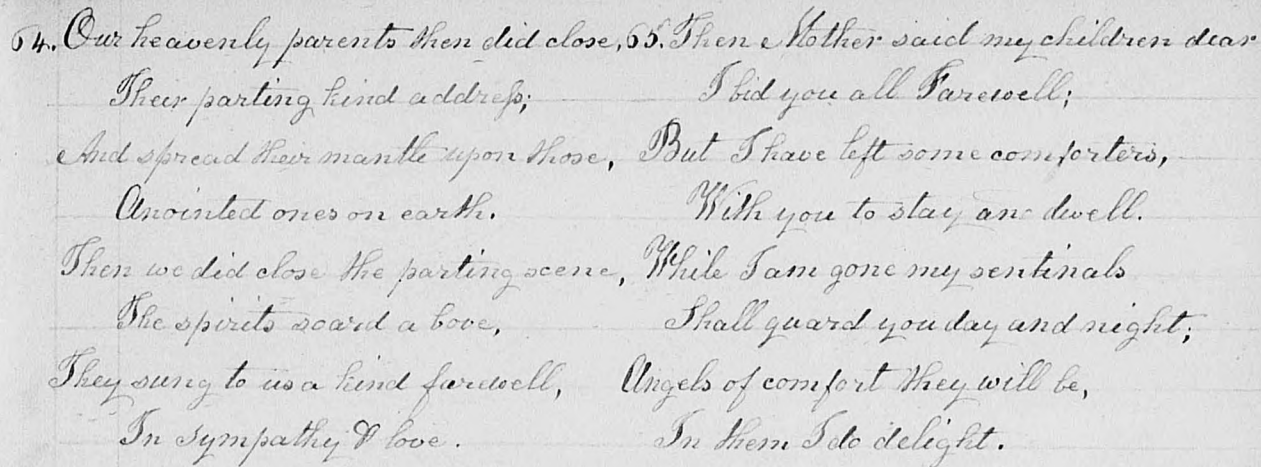 64. Our heavenly parents then did close,
Their parting kind address;
And spread their mantle upon those,
Anointed ones on earth.
Then we did close the parting scene,
The spirits soard above,
They sung to us a kind farewell,
In sympathy & love.
65. Then Mother said my children dear
I bid you all Farewell;
But I have left some comforters,
With you to stay and dwell.
While I am gone my sentinals
Shall guard you day and night;
Angels of comfort they will be,
In them I do delight.